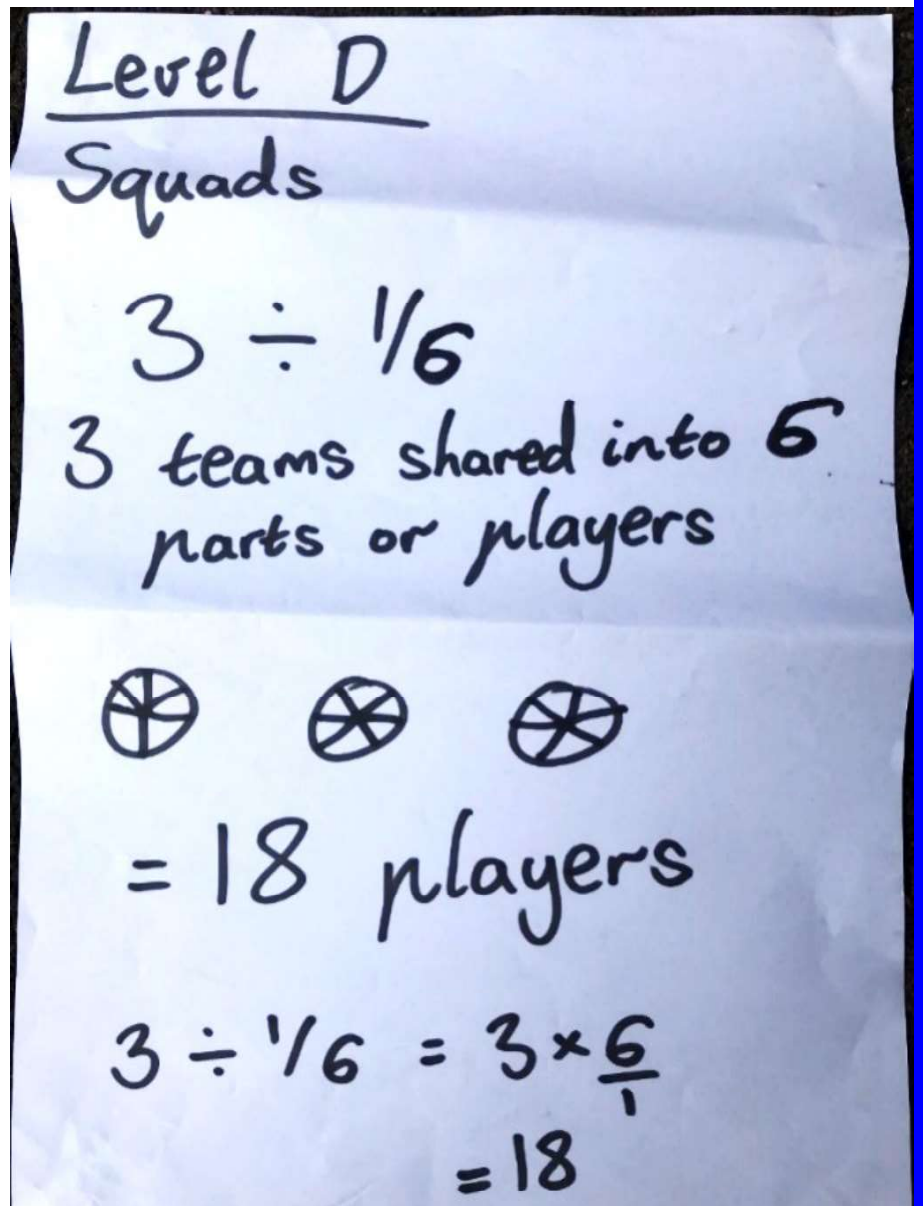 Level D
Squads
3 ÷ 1/6
3 teams shared into 6
parts or players
= 18 players
3 ÷ 1/6 = 3 × 6/1
= 18